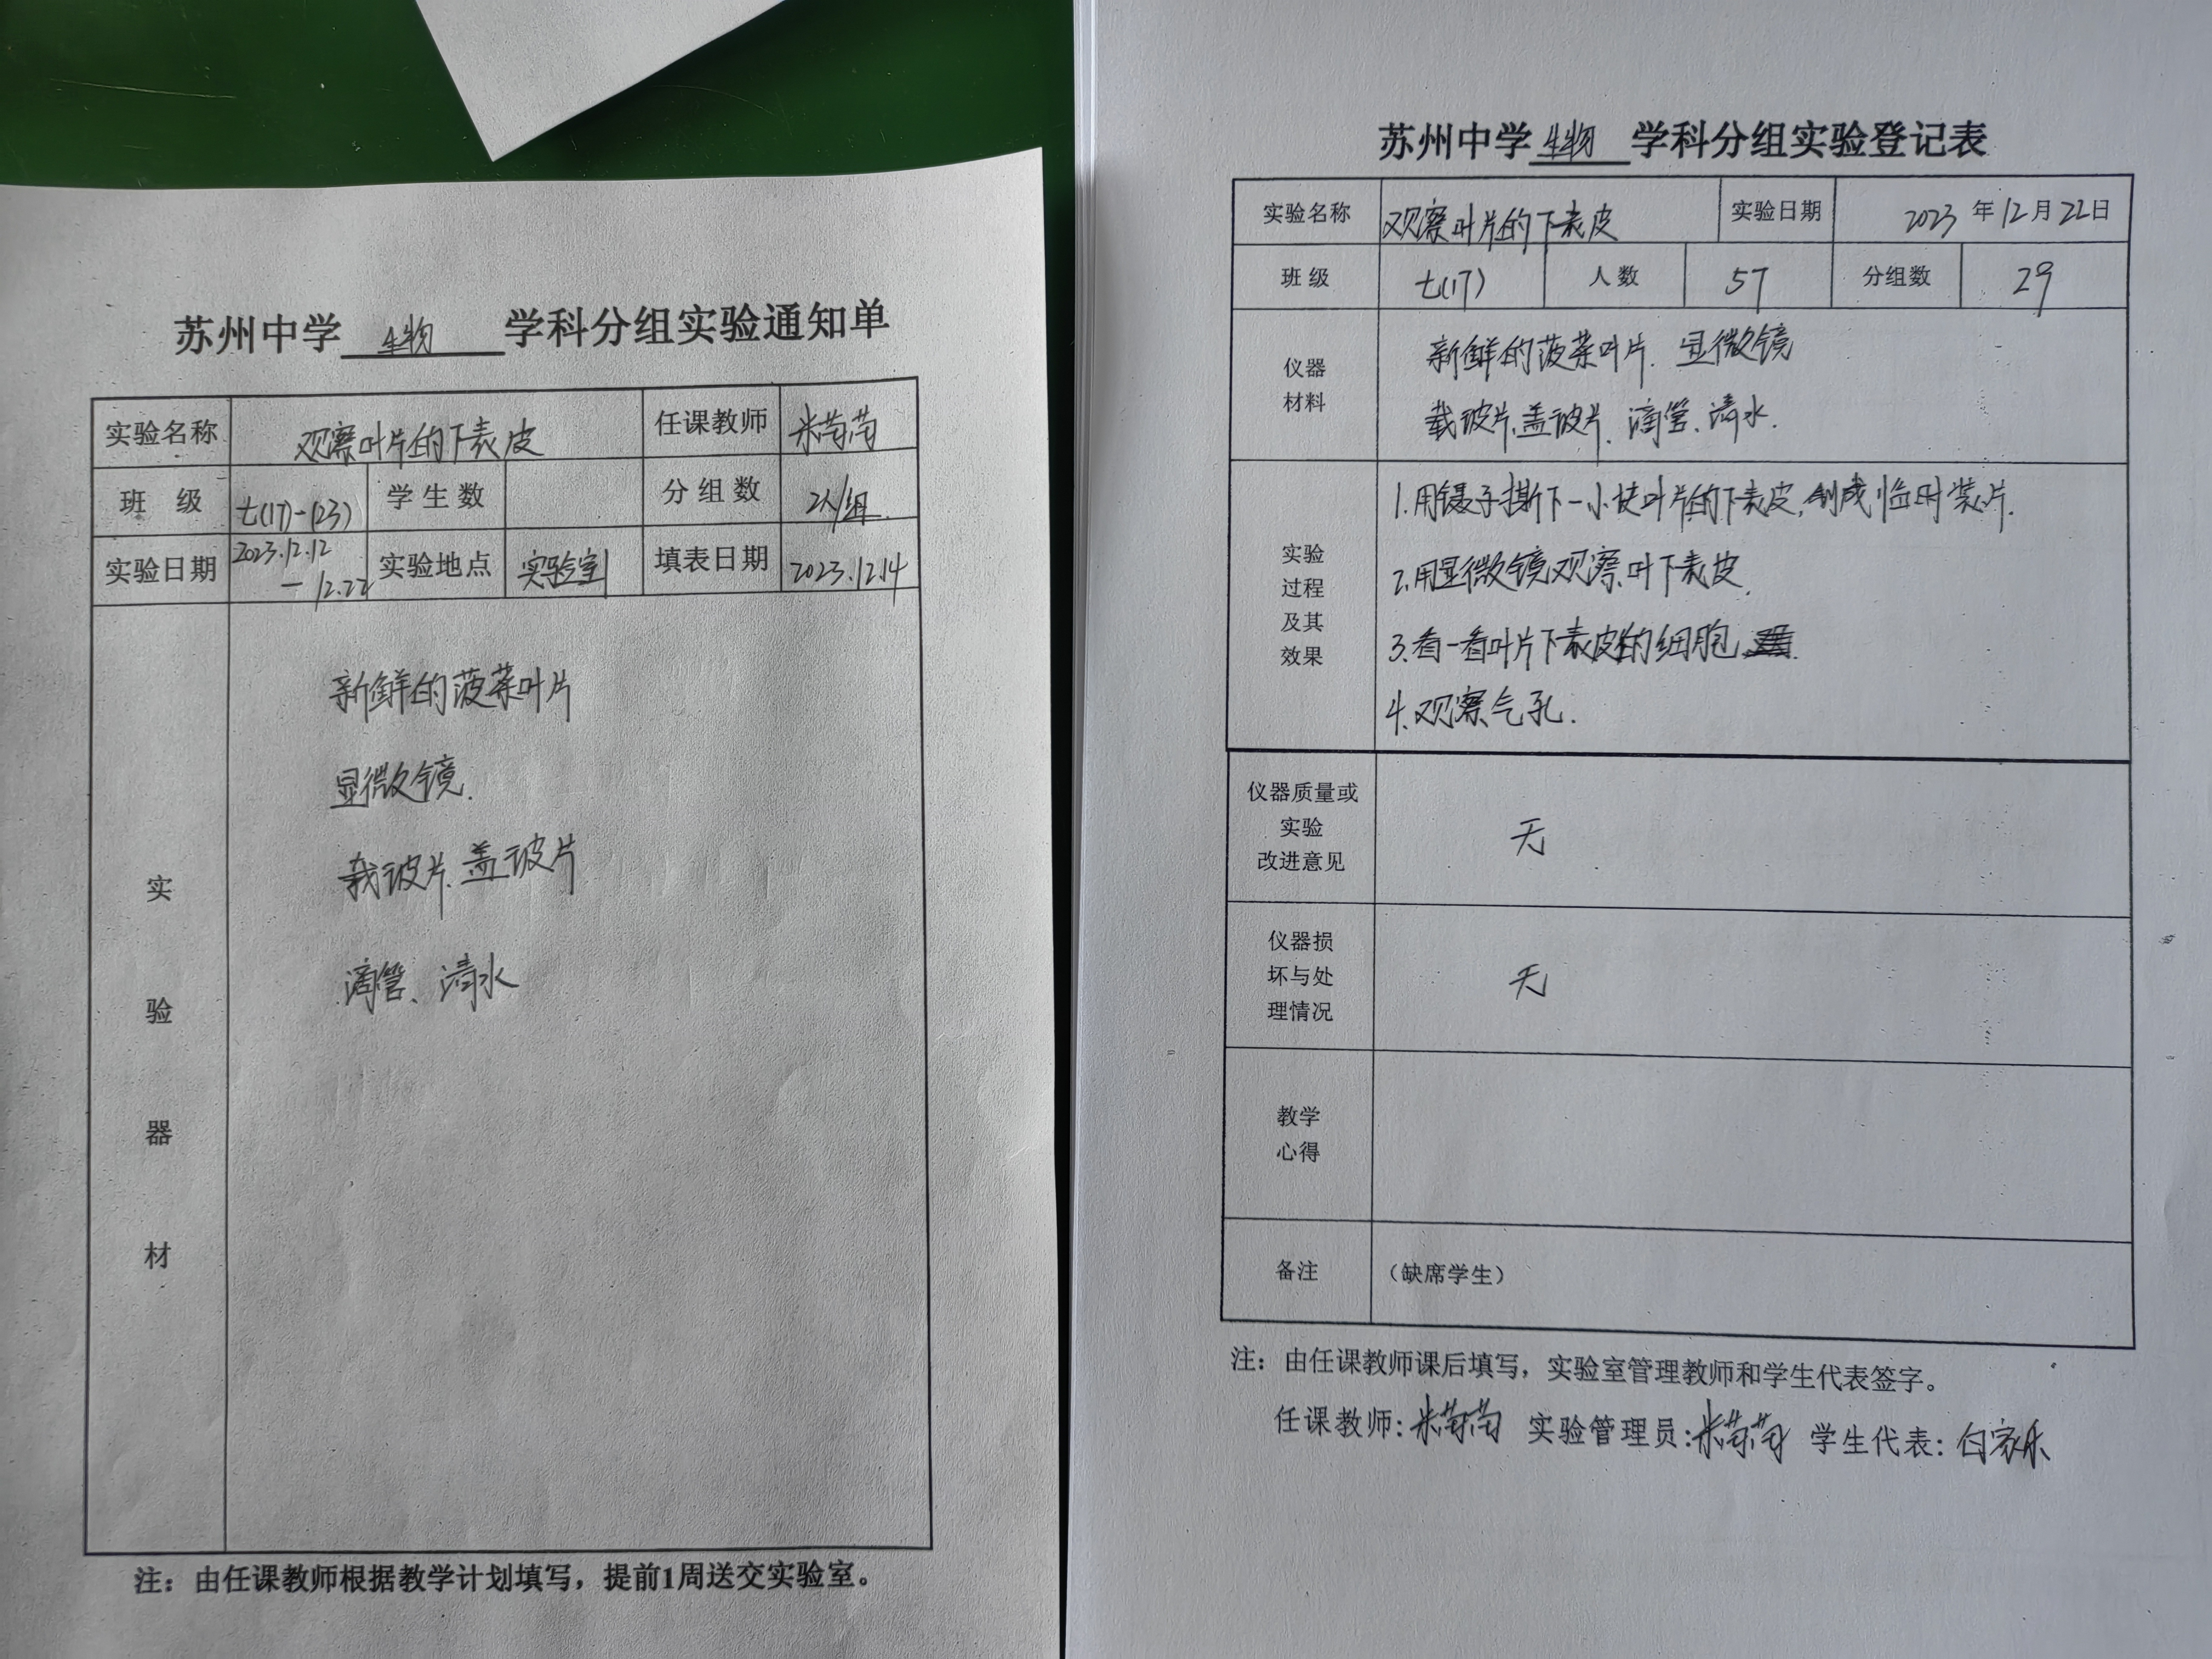 苏州中学 生物 学科分组实验通知单
实验名称 观察叶片的下表皮 任课教师 米菊菊
班 级 七(17)-(23) 学生数 分组数 2人/组
实验日期 2023.12.12 — 12.22 实验地点 实验室 填表日期 2023.12.14
实验器材
新鲜的菠菜叶片
显微镜.
载玻片、盖玻片
滴管、清水
注：由任课教师根据教学计划填写，提前1周送交实验室。
苏州中学 生物 学科分组实验登记表
实验名称 观察叶片的下表皮 实验日期 2023 年 12 月 22 日
班级 七(17) 人数 57 分组数 29
仪器材料
新鲜的菠菜叶片. 显微镜
载玻片、盖玻片、滴管、清水.
实验过程及其效果
1.用镊子撕下一小块叶片的下表皮,制成临时装片.
2.用显微镜观察叶下表皮.
3.看一看叶片下表皮的细胞
4.观察气孔.
仪器质量或实验改进意见 无
仪器损坏与处理情况 无
教学心得
备注 （缺席学生）
注：由任课教师课后填写，实验室管理教师和学生代表签字。
任课教师: 实验管理员: 学生代表: 白家乐